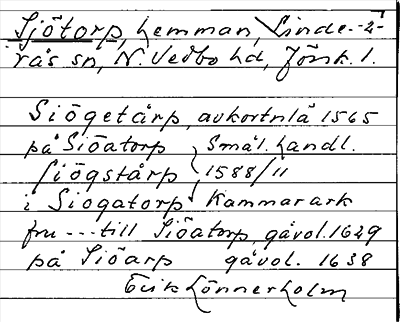 Sjötorp, hemman, Linde- -2-
rås sn, N. Vedbo hd, Jönk. l.
Siögetårp, avkortnlä 1565
på Siöatorp } Smål. handl.
Siögstårp } 1588/11
i Siogatorp } Kammarark
fru --- till Siöatorp, gåvol. 1629
på Siöarp gåvol. 1638
Erik Lönnerholm